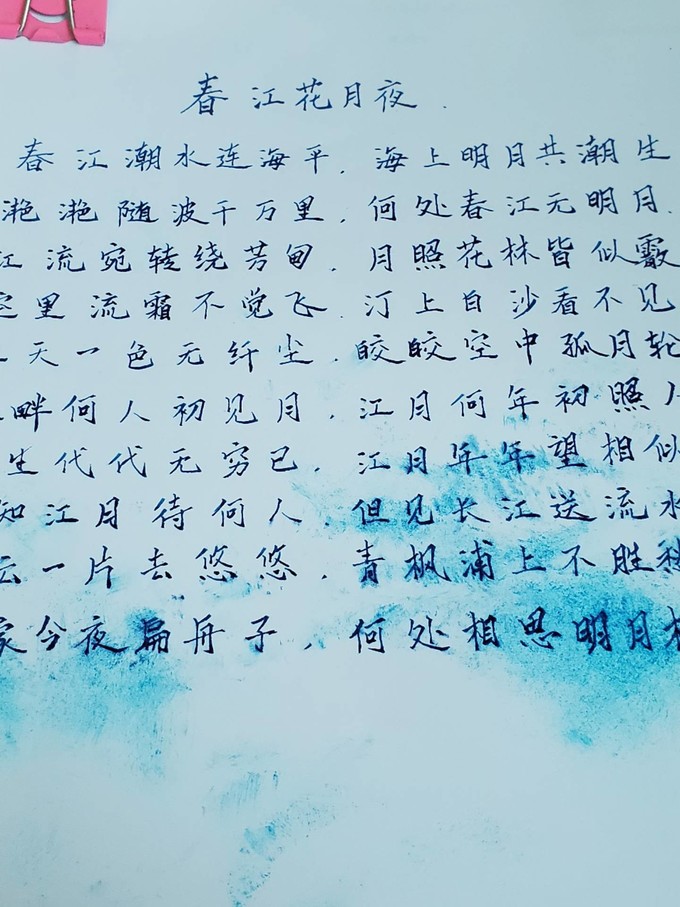 春江花月夜.
春江潮水连海平,海上明月共潮生
滟滟随波千万里,何处春江无明月.
江流宛转绕芳甸,月照花林皆似霰
空里流霜不觉飞.汀上白沙看不见
天一色无纤尘,皎皎空中孤月轮
畔何人初见月,江月何年初照人
生代代无穷已,江月年年望相似
知江月待何人,但见长江送流水
云一片去悠悠,青枫浦上不胜愁
家今夜扁舟子,何处相思明月楼